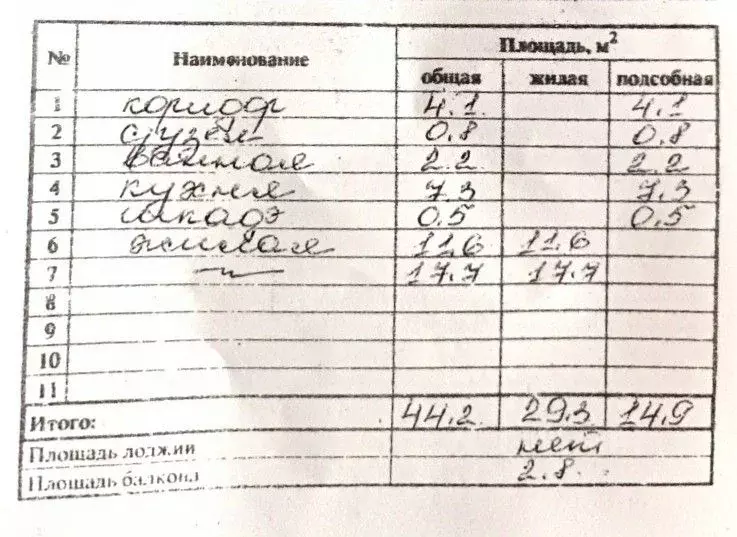 № Наименование Площадь, м²
общая жилая подсобная
1 коридор 4.1 4.1
2 с/узел 0.8 0.8
3 ванная 2.2 2.2
4 кухня 7.3 7.3
5 шкаф 0.5 0.5
6 жилая 11.6 11.6
7 —"— 17.7 17.7
8
9
10
11
Итого: 44.2 29.3 14.9
Площадь лоджии нет
Площадь балкона 2.8